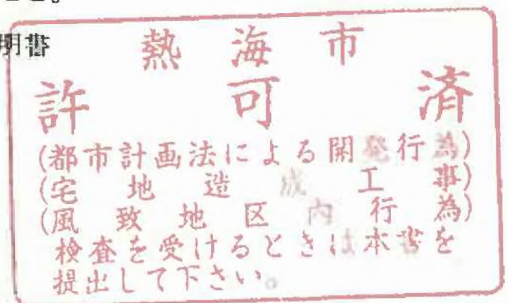 明書
熱海市
許可済
(都市計画法による開発行為)
(宅地造成工事)
(風致地区内行為)
検査を受けるときは本書を
提出して下さい。